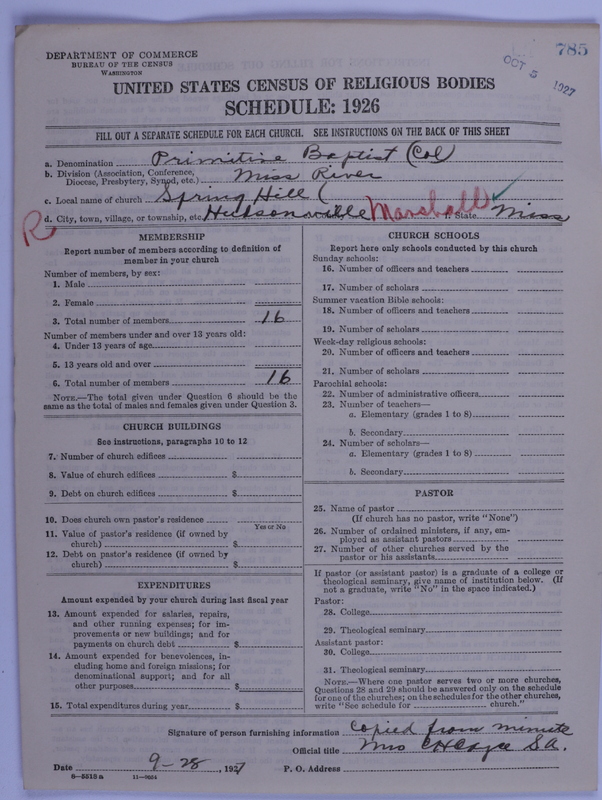 785
DEPARTMENT OF COMMERCE
BUREAU OF THE CENSUS
WASHINGTON
OCT 5 1927
UNITED STATES CENSUS OF RELIGIOUS BODIES
SCHEDULE: 1926
FILL OUT A SEPARATE SCHEDULE FOR EACH CHURCH. SEE INSTRUCTIONS ON THE BACK OF THIS SHEET
a. Denomination Primitive Baptist (Col)
b. Division (Association, Conference,
Diocese, Presbytery, Synod, etc.) Miss River
c. Local name of church Spring Hill (
d. City, town, village, or township, etc. Hudsonville Marshall State Miss
R
MEMBERSHIP
Report number of members according to definition of
member in your church
Number of members, by sex:
1. Male
2. Female
3. Total number of members 16
Number of members under and over 13 years old:
4. Under 13 years of age
5. 13 years old and over
6. Total number of members 16
NOTE.—The total given under Question 6 should be the
same as the total of males and females given under Question 3.
CHURCH BUILDINGS
See instructions, paragraphs 10 to 12
7. Number of church edifices
8. Value of church edifices $
9. Debt on church edifices $
10. Does church own pastor's residence
Yes or No
11. Value of pastor's residence (if owned by
church) $
12. Debt on pastor's residence (if owned by
church) $
EXPENDITURES
Amount expended by your church during last fiscal year
13. Amount expended for salaries, repairs,
and other running expenses; for im-
provements or new buildings; and for
payments on church debt $
14. Amount expended for benevolences, in-
cluding home and foreign missions; for
denominational support; and for all
other purposes $
15. Total expenditures during year $
CHURCH SCHOOLS
Report here only schools conducted by this church
Sunday schools:
16. Number of officers and teachers
17. Number of scholars
Summer vacation Bible schools:
18. Number of officers and teachers
19. Number of scholars
Week-day religious schools:
20. Number of officers and teachers
21. Number of scholars
Parochial schools:
22. Number of administrative officers
23. Number of teachers—
a. Elementary (grades 1 to 8)
b. Secondary
24. Number of scholars—
a. Elementary (grades 1 to 8)
b. Secondary
PASTOR
25. Name of pastor
(If church has no pastor, write "None")
26. Number of ordained ministers, if any, em-
ployed as assistant pastors
27. Number of other churches served by the
pastor or his assistants
If pastor (or assistant pastor) is a graduate of a college or
theological seminary, give name of institution below. (If
not a graduate, write "No" in the space indicated.)
Pastor:
28. College
29. Theological seminary
Assistant pastor:
30. College
31. Theological seminary
NOTE.—Where one pastor serves two or more churches,
Questions 28 and 29 should be answered only on the schedule
for one of the churches; on the schedules for the other churches,
write "See schedule for church."
Signature of person furnishing information Copied from minute
Official title Mrs S.A.
Date 9-28, 1927 P. O. Address
8-5518a 11-9024